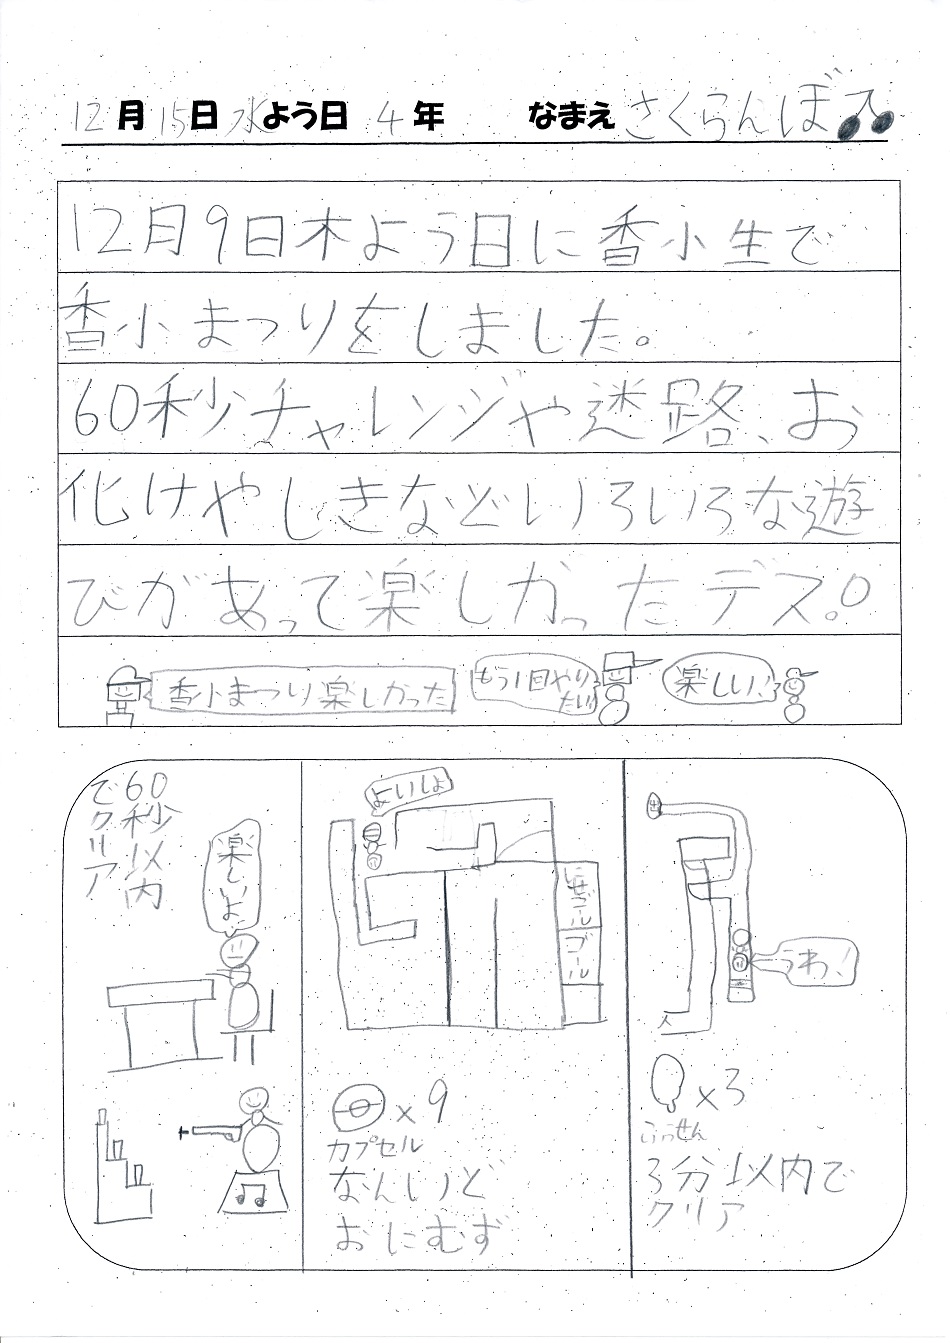 12月15日水よう日 4年 なまえ さくらんぼ
12月9日木よう日に香小生で
香小まつりをしました。
60秒チャレンジや迷路、お
化けやしきなどいろいろな遊
びがあって楽しかったデス。
香小まつり楽しかった
もう1回やり
たい!!
楽しい!
60秒以内
でクリア
楽しいよ
よいしょ
ゴール
カプセル
×9
なんいど
おにむず
出
うわ!
×3
ふうせん
3分以内で
クリア